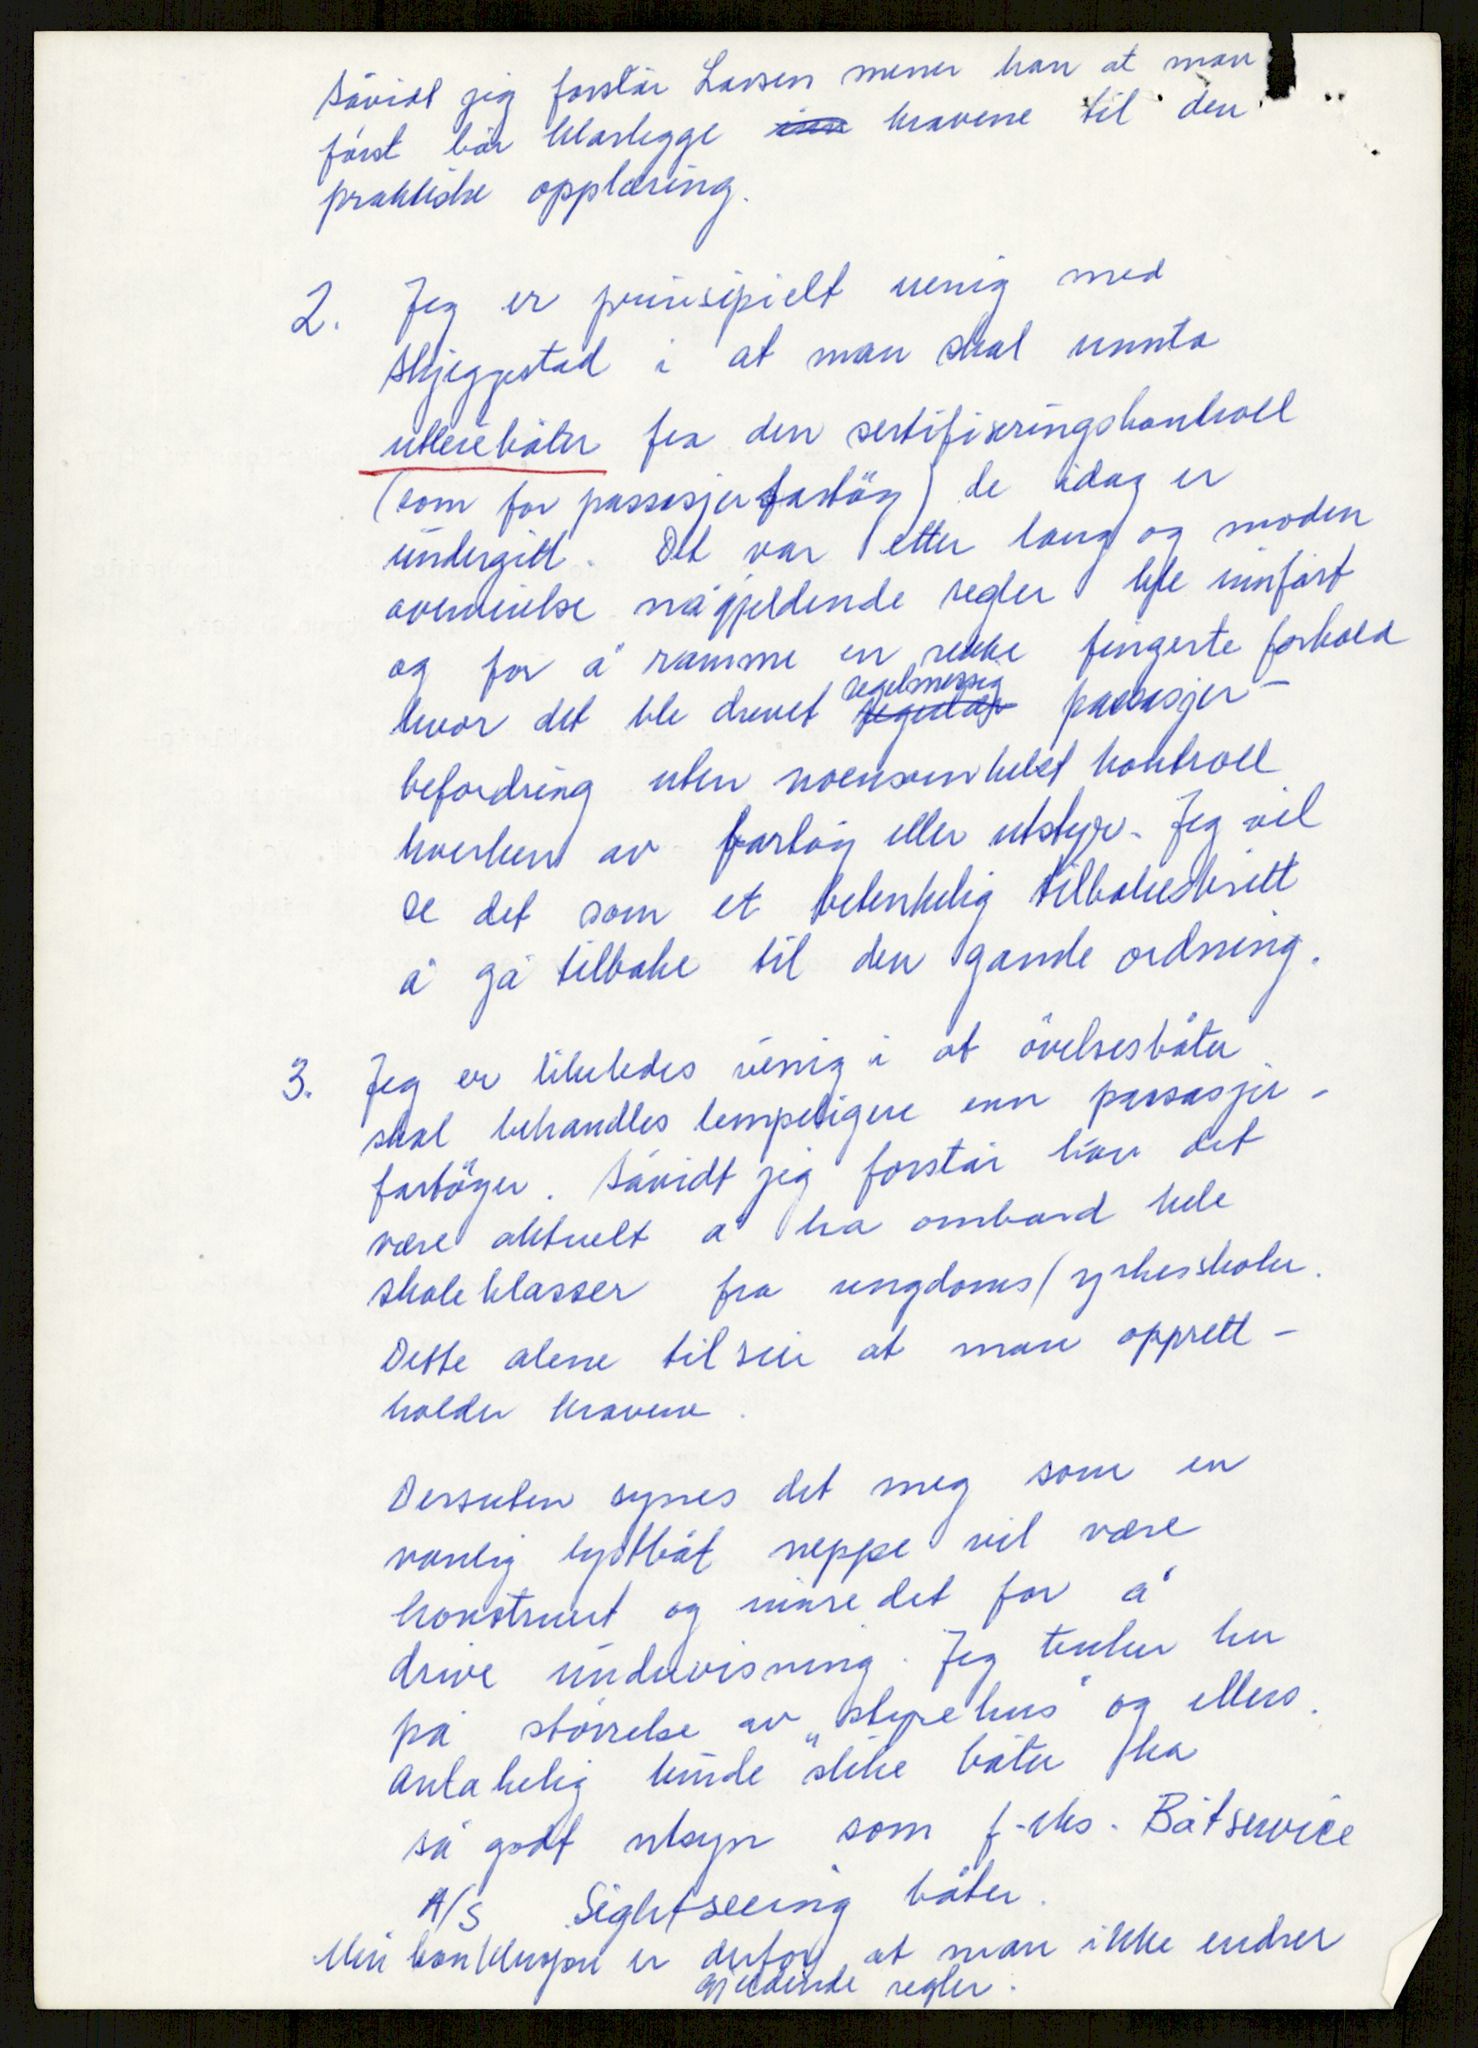 Såvidt jeg forstår Larsen mener han at man
först bör klarlegge kravene til den
praktiske opplæring.
2. Jeg er prinsipielt uenig med
Skjeggestad i at man skal unnta
utleiebåter fra den sertifiseringskontroll
(som for passasjerfartöy) de idag er
undergitt. Det var etter lang og moden
overveielse någjeldende regler ble innfört
og for å ramme en rekke fingerte forhold
hvor det ble drevet regelmessig passasjer-
befordring uten noensomhelst kontroll
hverken av fartöy eller utstyr. Jeg vil
se det som et betenkelig tilbakeskritt
å gå tilbake til den gamle ordning.
3. Jeg er likeledes uenig i at övelsesbåter
skal behandles lempeligere enn passasjer-
fartöyer. Såvidt jeg forstår kan det
være aktuelt å ha ombord hele
skoleklasser fra ungdoms/yrkesskoler.
Dette alene tilsier at man opprett-
holder kravene.
Dersuten synes det meg som en
vanlig lystbåt neppe vil være
konstruert og innredet for å
drive undervisning. Jeg tenker her
på störrelse av "styrehus" og ellers.
Antakelig kunde slike båter ha
så godt utsyn som f.eks. Båtservice
A/S Sightseeing båter.
Min konklusjon er derfor at man ikke endrer
gjeldende regler.